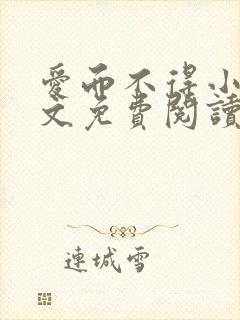 愛而不得小
文免費閱讀
連城雪